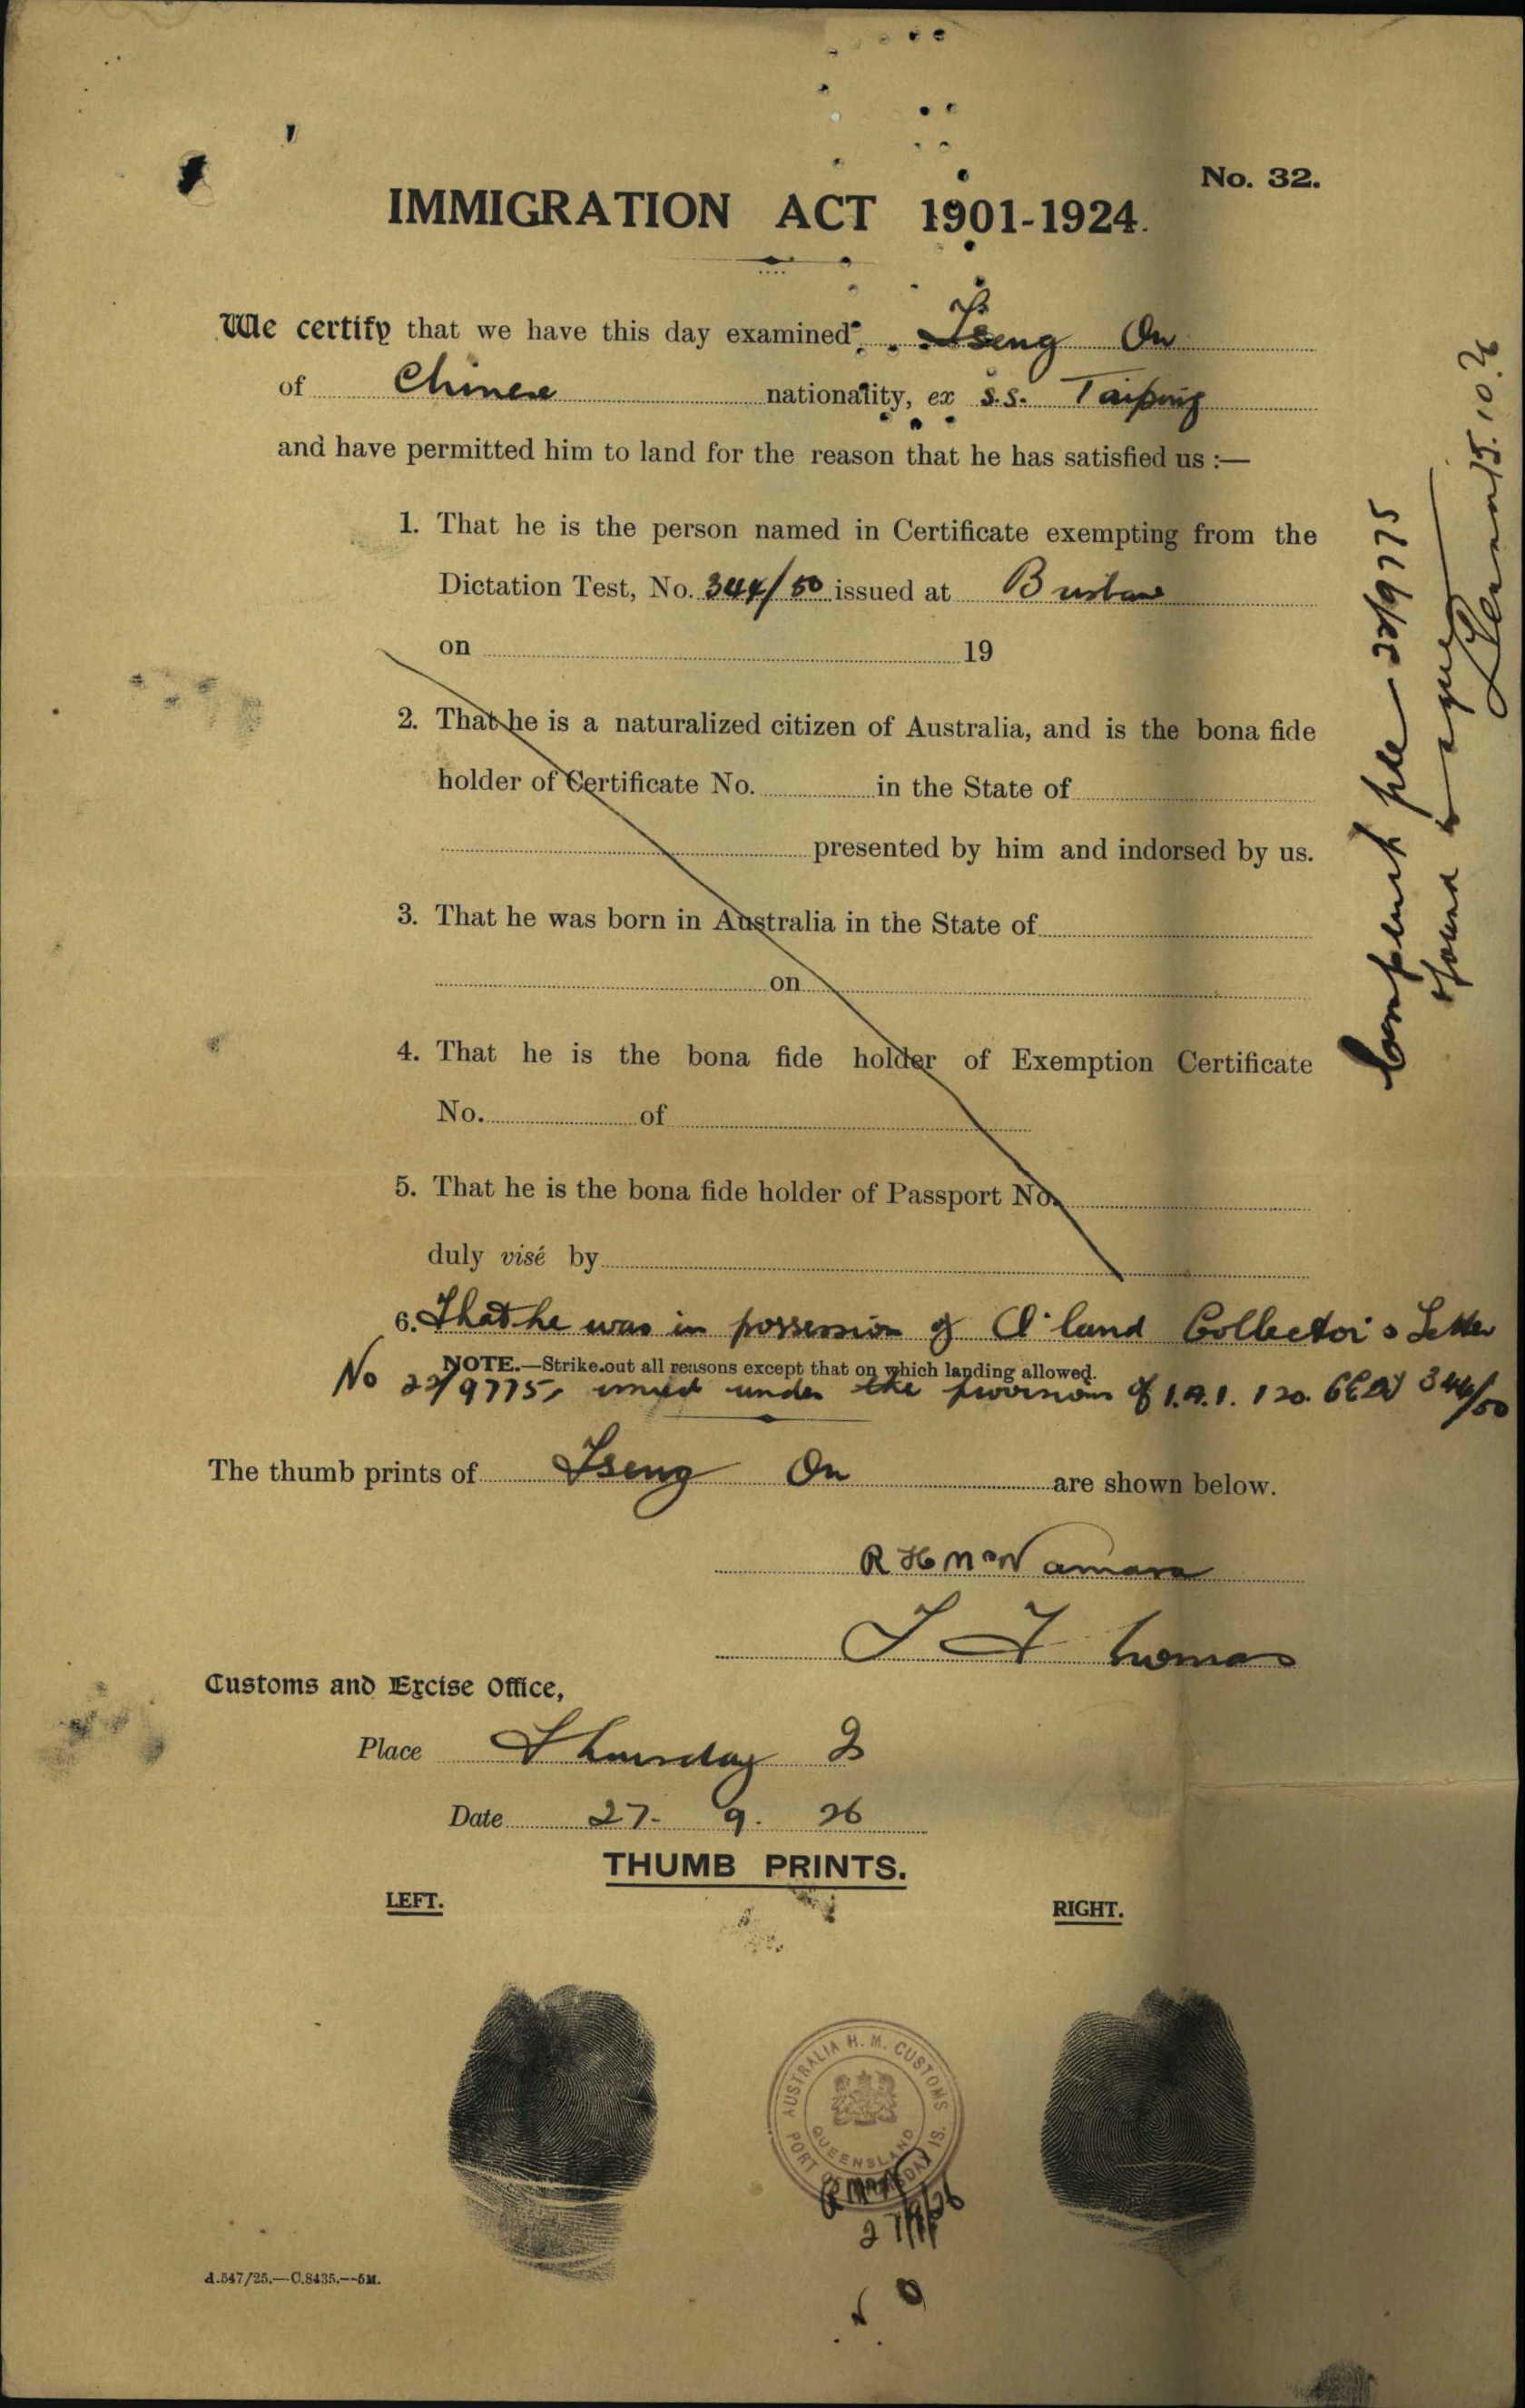 No. 32.
IMMIGRATION ACT 1901-1924.
We certify that we have this day examined Tseng On
of Chinese nationality, ex s.s. Taiping
and have permitted him to land for the reason that he has satisfied us :—
1. That he is the person named in Certificate exempting from the
Dictation Test, No. 344/50 issued at Brisbane
on 19
2. That he is a naturalized citizen of Australia, and is the bona fide
holder of Certificate No. in the State of
presented by him and indorsed by us.
3. That he was born in Australia in the State of
on
4. That he is the bona fide holder of Exemption Certificate
No. of
5. That he is the bona fide holder of Passport No.
duly visé by
6. That he was in possession of Q'land Collector's Letter
NOTE.—Strike out all reasons except that on which landing allowed.
No 22/9775, issued under the provisions of I.A.1. 120. CEDT 344/50
The thumb prints of Tseng On are shown below.
R H McNamara
T F Thomas
Customs and Excise Office,
Place Thursday I
Date 27. 9. 26
THUMB PRINTS.
LEFT.
RIGHT.
AUSTRALIA H. M. CUSTOMS
QUEENSLAND
PORT OF THURSDAY IS.
27/9/26
A.547/25.—C.8435.—5M.
22/9775
found to agree
15.10.26